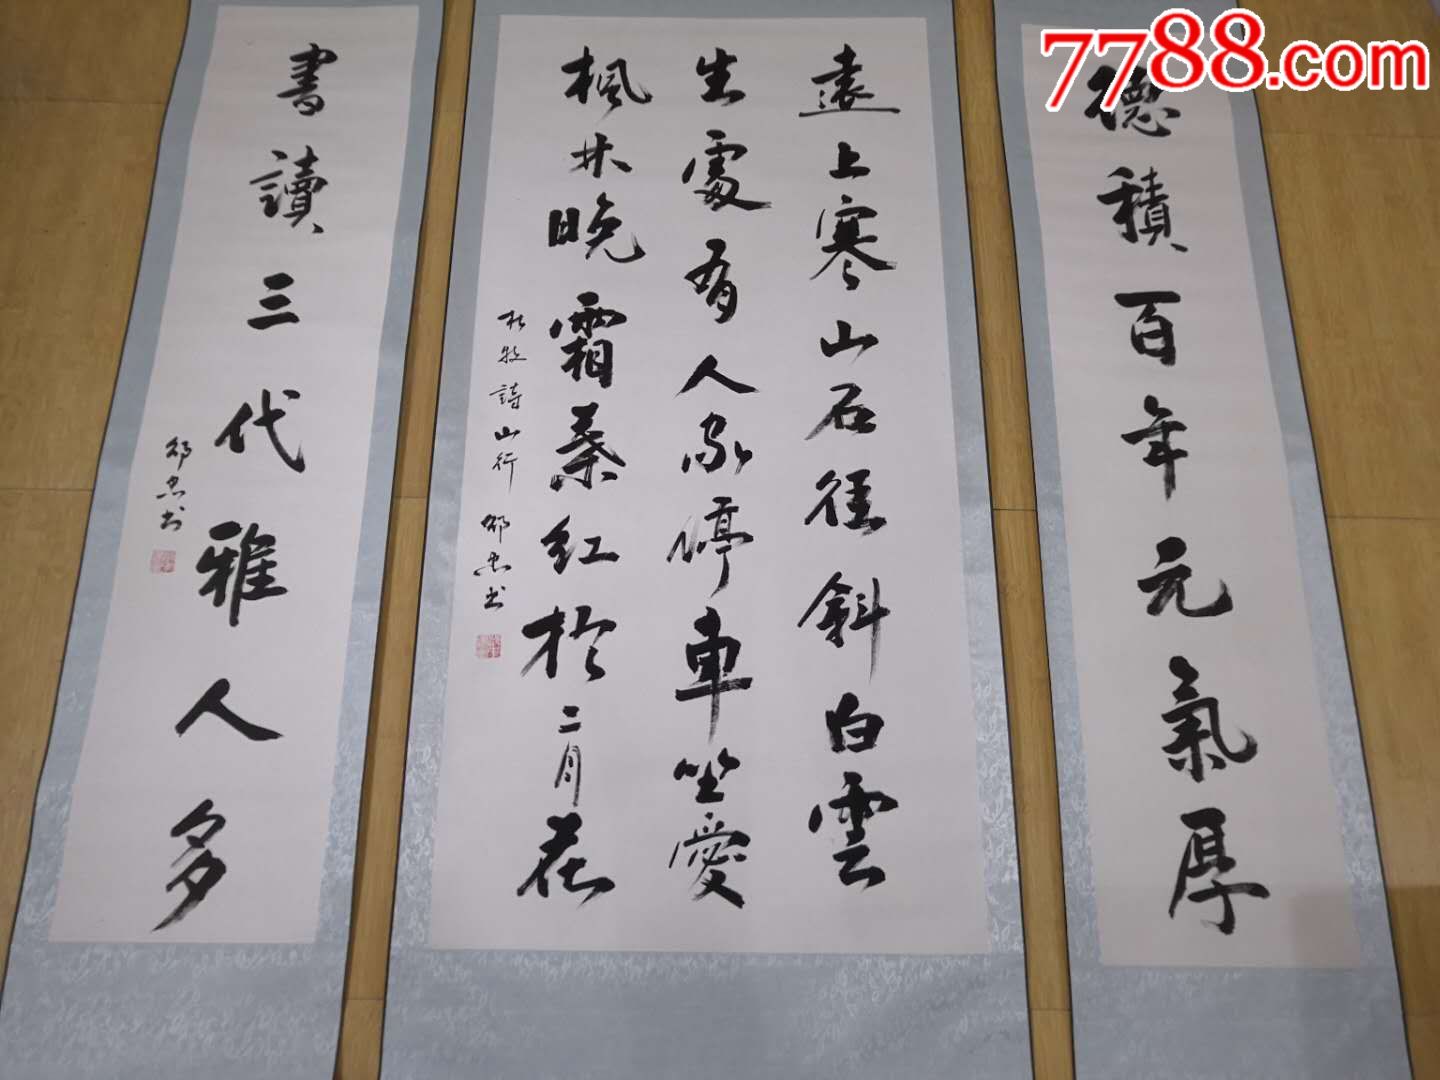 7788.com
德積百年元氣厚
遠上寒山石徑斜白雲
生處有人家停車坐愛
楓林晚霜葉紅於二月花
杜牧詩山行 邵忠书
書讀三代雅人多
邵忠书